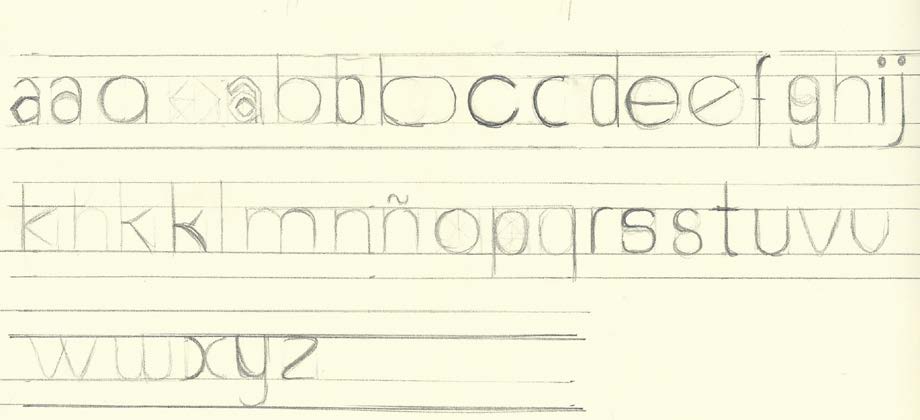 aaaabbbccdeefghij
khkklmnñopqrsstuvv
wwxyz